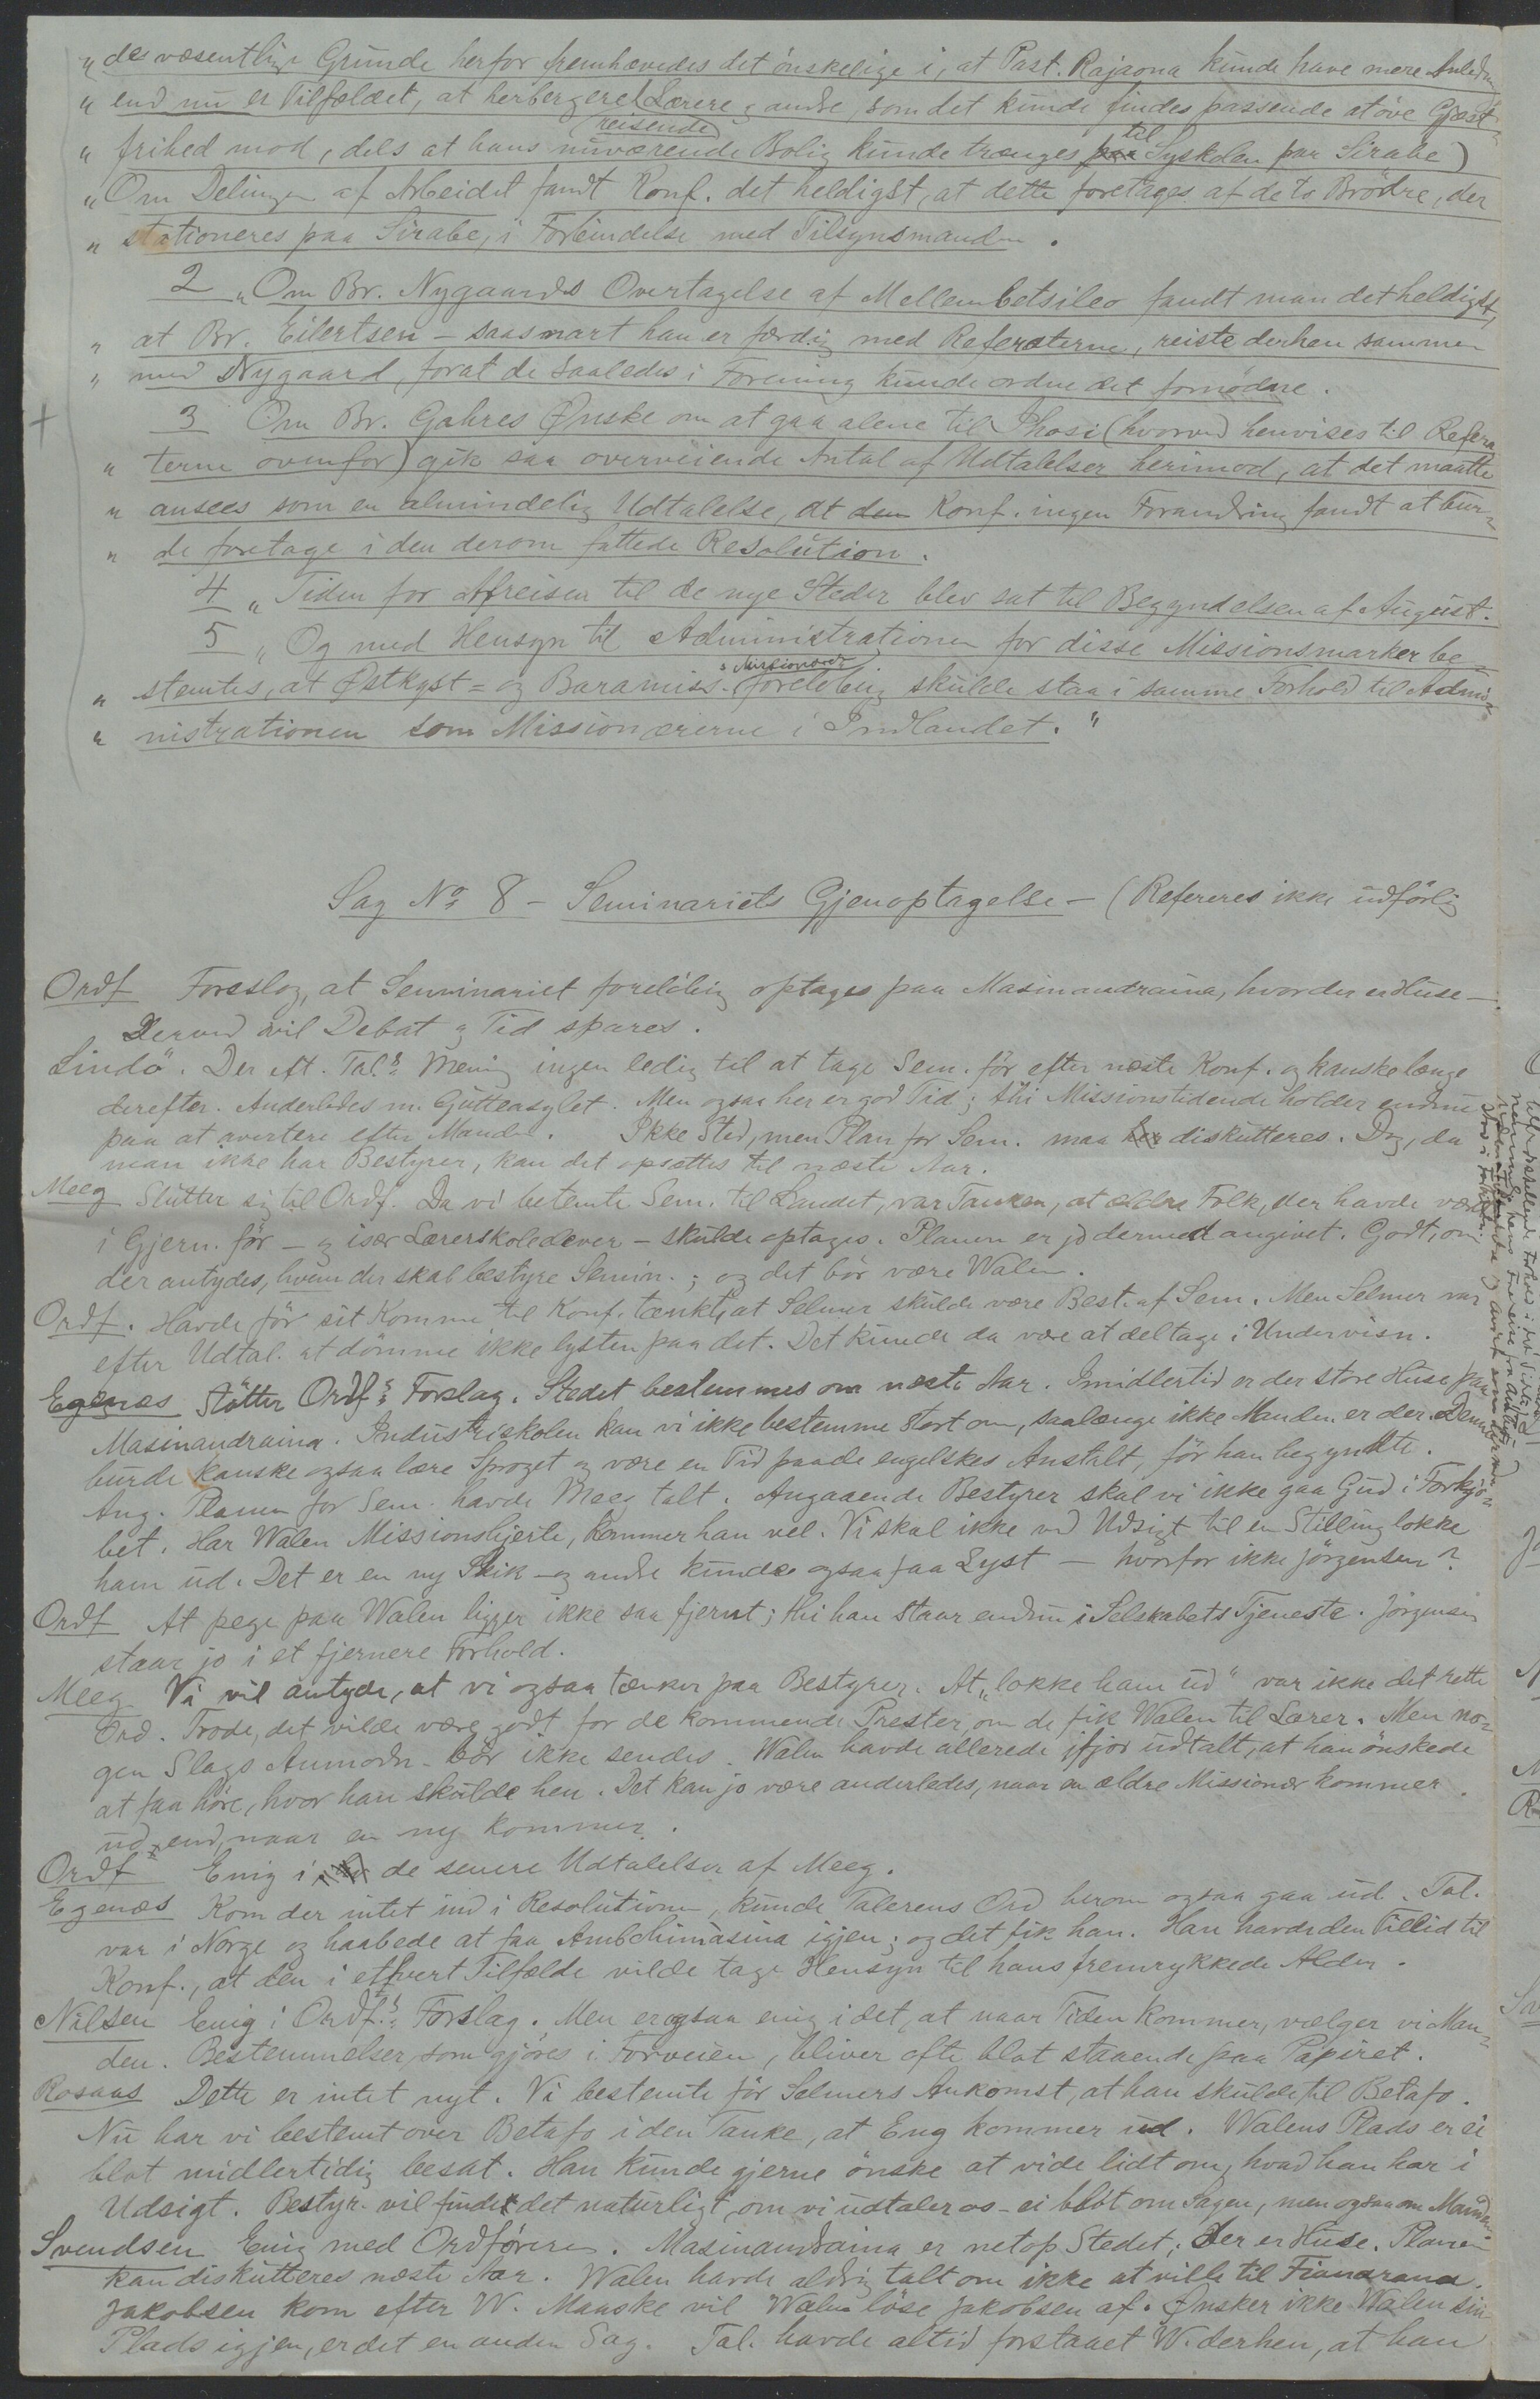 „des væsentlige Grunde herfor fremhævedes det önskelige i, at Past. Rajaona kunde have mere Anledn.
„ end nu er Tilfældet, at herbergere Lærere & andre, som det kunde findes passende at öve Gjæst-
reisende
„ frihed mod, dels at hans nuværende Bolig kunde trænges til Syskolen paa Sirabe)
„Om Delingen af Arbeidet fandt Konf. det heldigst, at dette foretages af de to Brödre, der
„ stationeres paa Sirabe, i Forbindelse med Tilsynsmanden.
2 „Om Br. Nygaards Overtagelse af Mellembetsileo fandt man det heldigst,
„ at Br. Eilertsen – saasnart han er færdig med Referaterne, reiste derhen sammen
„ med Nygaard, forat de saaledes i Forening kunde ordne det fornödne.
3 Om Br. Gahres Ønske om at gaa alene til Ihosi (hvorved henvises til Refera
„ terne ovenfor) gik saa overveiende Antal af Udtalelser herimod, at det maatte
„ ansees som en almindelig Udtalelse, at den Konf. ingen Forandring fandt at bur-
„ de foretage i den derom fattede Resolution.
4 „ Tiden for Afreisen til de nye Steder blev sat til Begyndelsen af August.
5 „ Og med Hensyn til Administrationen for disse Missionsmarker be-
„ stemtes, at Østkyst= og Baramiss. foreløbig skulde staa i samme Forhold til Admi-
„ nistrationen som Missionærerne i Indlandet."
Sag No 8 – Seminariets Gjenoptagelse – (Refereres ikke udförlig
Ordf Foreslog, at Seminariet forelöbig optages paa Masinandraina, hvor der er Huse –.
Derved vil Debat & Tid spares.
Lindö. Der eft. Tal.s Mening ingen ledig til at tage Sem. för efter næste Konf. og kanske længe
derefter. Anderledes m. Gutteasylet. Men ogsaa her er god Tid; thi Missionstidende holder endnu
paa at avertere efter Mandel. Ikke Sted, men Plan for Sem. maa diskutteres. Dog, da
man ikke har Bestyrer, kan det opsættes til næste Aar.
Meeg Slutter sig til Ordf. Da vi betemte Sem. til Landet, var Tanken, at ældre Folk, der havde været
i Gjern. för – & især Lærerskoleelever – skulde optages. Planen er jo dermed angivet. Godt, om
der antydes, hvem der skal bestyre Semin.; og det bör være Walen.
Ordf. Havde för sit Komme til Konf. tænkt, at Selmer skulde være Best. af Sem. Men Selmer var
efter Udtal. at dömme ikke lysten paa det. Det kunde da være at deltage i Undervisn.
Egenæs Stötter Ordf.s Forslag. Stedet bestemmes om næste Aar. Imidlertid er der store Huse paa
Masinandraina. Industriskolen kan vi ikke bestemme stort om, saalænge ikke Manden er der. Denne
burde kanske ogsaa lære Sproget og være en Tid paa de engelskes Anstalt, för han begyndte.
Ang. Planen for Sem. havde Meeg talt. Angaaende Bestyrer skal vi ikke gaa Gud i Forkjö-
bet. Har Walen Missionshjerte, kommer han vel. Vi skal ikke ved Udsigt til en Stilling lokke
ham ud. Det er en ny Skik – og andre kunde ogsaa faa Lyst – hvorfor ikke Jörgensen?
Ordf At pege paa Walen ligger ikke saa fjernt; thi han staar endnu i Selskabets Tjeneste. Jörgensen
staar jo i et fjernere Forhold.
Meeg Vi vil antyde, at vi ogsaa tænker paa Bestyrer. At „lokke ham ud" var ikke det rette
Ord. Trode, det vilde være godt for de kommende Prester, om de fik Walen til Lærer. Men no-
gen Slags Anmodn. bör ikke sendes. Walen havde allerede ifjor udtalt, at han önskede
at faa höre, hvor han skulde hen. Det kan jo være anderledes, naar en ældre Missionær kommer
ud, end, naar en ny kommer.
Ordf Enig i de senere Udtalelser af Meeg.
Egenæs Kom der intet ind i Resolutionen, kunde Talerens Ord herom ogsaa gaa ud. Tal.
var i Norge og haabede at faa Ambohimasina igjen; og det fik han. Han havde den Tillid til
Konf., at den i ethvert Tilfælde vilde tage Hensyn til hans fremrykkede Alder.
Nilsen Enig i Ordf.s Forslag. Men er ogsaa enig i det, at naar Tiden kommer, vælger vi Man-
den. Bestemmelser, som gjöres i Forveien, bliver ofte blot staaende paa Papiret.
Rosaas Dette er intet nyt. Vi bestemte för Selmers Ankomst, at han skulde til Betafo.
Nu har vi bestemt over Betafo i den Tanke, at Eng kommer ud. Walens Plads er ei
blot midlertidig besat. Han kunde gjerne önske at vide lidt om, hvad han har i
Udsigt. Bestyr. vil finde det naturligt, om vi udtaler os – ei blot om Sagen, men ogsaa om Manden.
Svendsen Enig med Ordföreren. Masinandraina er netop Stedet; der er Huse. Planen
kan diskutteres næste Aar. Walen havde aldrig talt om ikke at ville til Fianarana.
Jakobsen kom efter W. Maaske vil Walen löse Jakobsen af. Ønsker ikke Walen sin
Plads igjen, er det en anden Sag. Tal. havde altid forstaaet W. derhen, at han